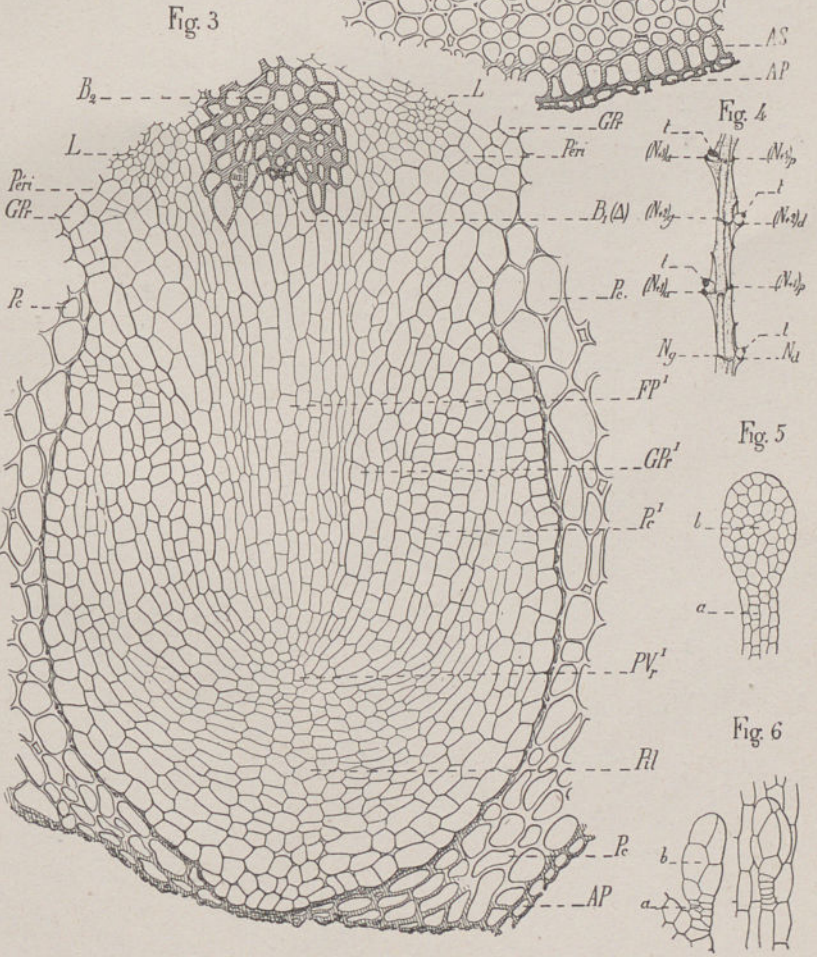 Fig. 3
AS
AP
B₂
L
L
GPr
Péri
Péri
GPr
B₁(Δ)
Pc
Pc.
FP¹
GPr¹
Pc¹
PVr¹
Pil
Pc
AP
Fig. 4
t
(N+3)p
t
(N+2)g
(N+2)d
t
(N+1)p
t
Ng
Nd
Fig. 5
l
a
Fig. 6
b
a